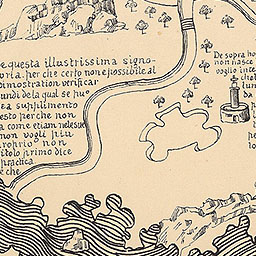 equesta illustrissima signo-
oria. per che certo non epossibile al
dimostration verificar
undi dela qual se puo
ea supplimento
esto perche non
a come etiam nelesue
non vogli piu
proprio non
itolo primo dice
practica
e che
De sopra ho
non nasce
voglio inte
che
lum
da
p